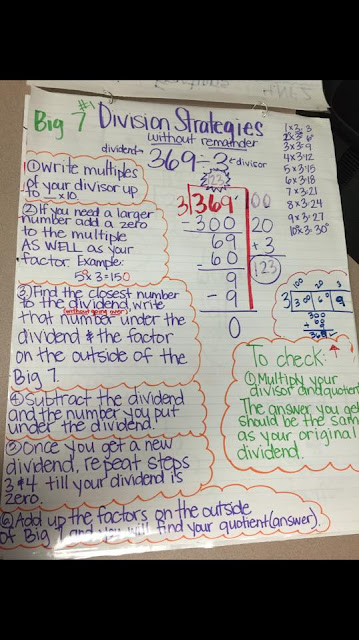 #1
Big 7 Division Strategies
without remainder
dividend→ 369÷3 ←divisor
1x3=3
2x3=6
3x3=9
4x3=12
5x3=15
6x3=18
7x3=21
8x3=24
9x3=27
10x3=30
① Write multiples
of your divisor up
to x10.
② If you need a larger
number add a zero
to the multiple
AS WELL as your
factor. Example:
5x3=150
③ Find the closest number
to the dividend, write
(without going over)
that number under the
dividend & the factor
on the outside of the
Big 7.
④ Subtract the dividend
and the number you put
under the dividend.
⑤ Once you get a new
dividend, repeat steps
3 & 4 till your dividend is
zero.
⑥ Add up the factors on the outside
of Big 7 and you will find your quotient (answer).
123
3 369 100
300 20
69 + 3
60 123
9
- 9
0
100 20 3
3 300 60 9
300
60
+ 9
369
To check:
① Multiply your
divisor and quotient
The answer you get
should be the same
as your original
dividend.